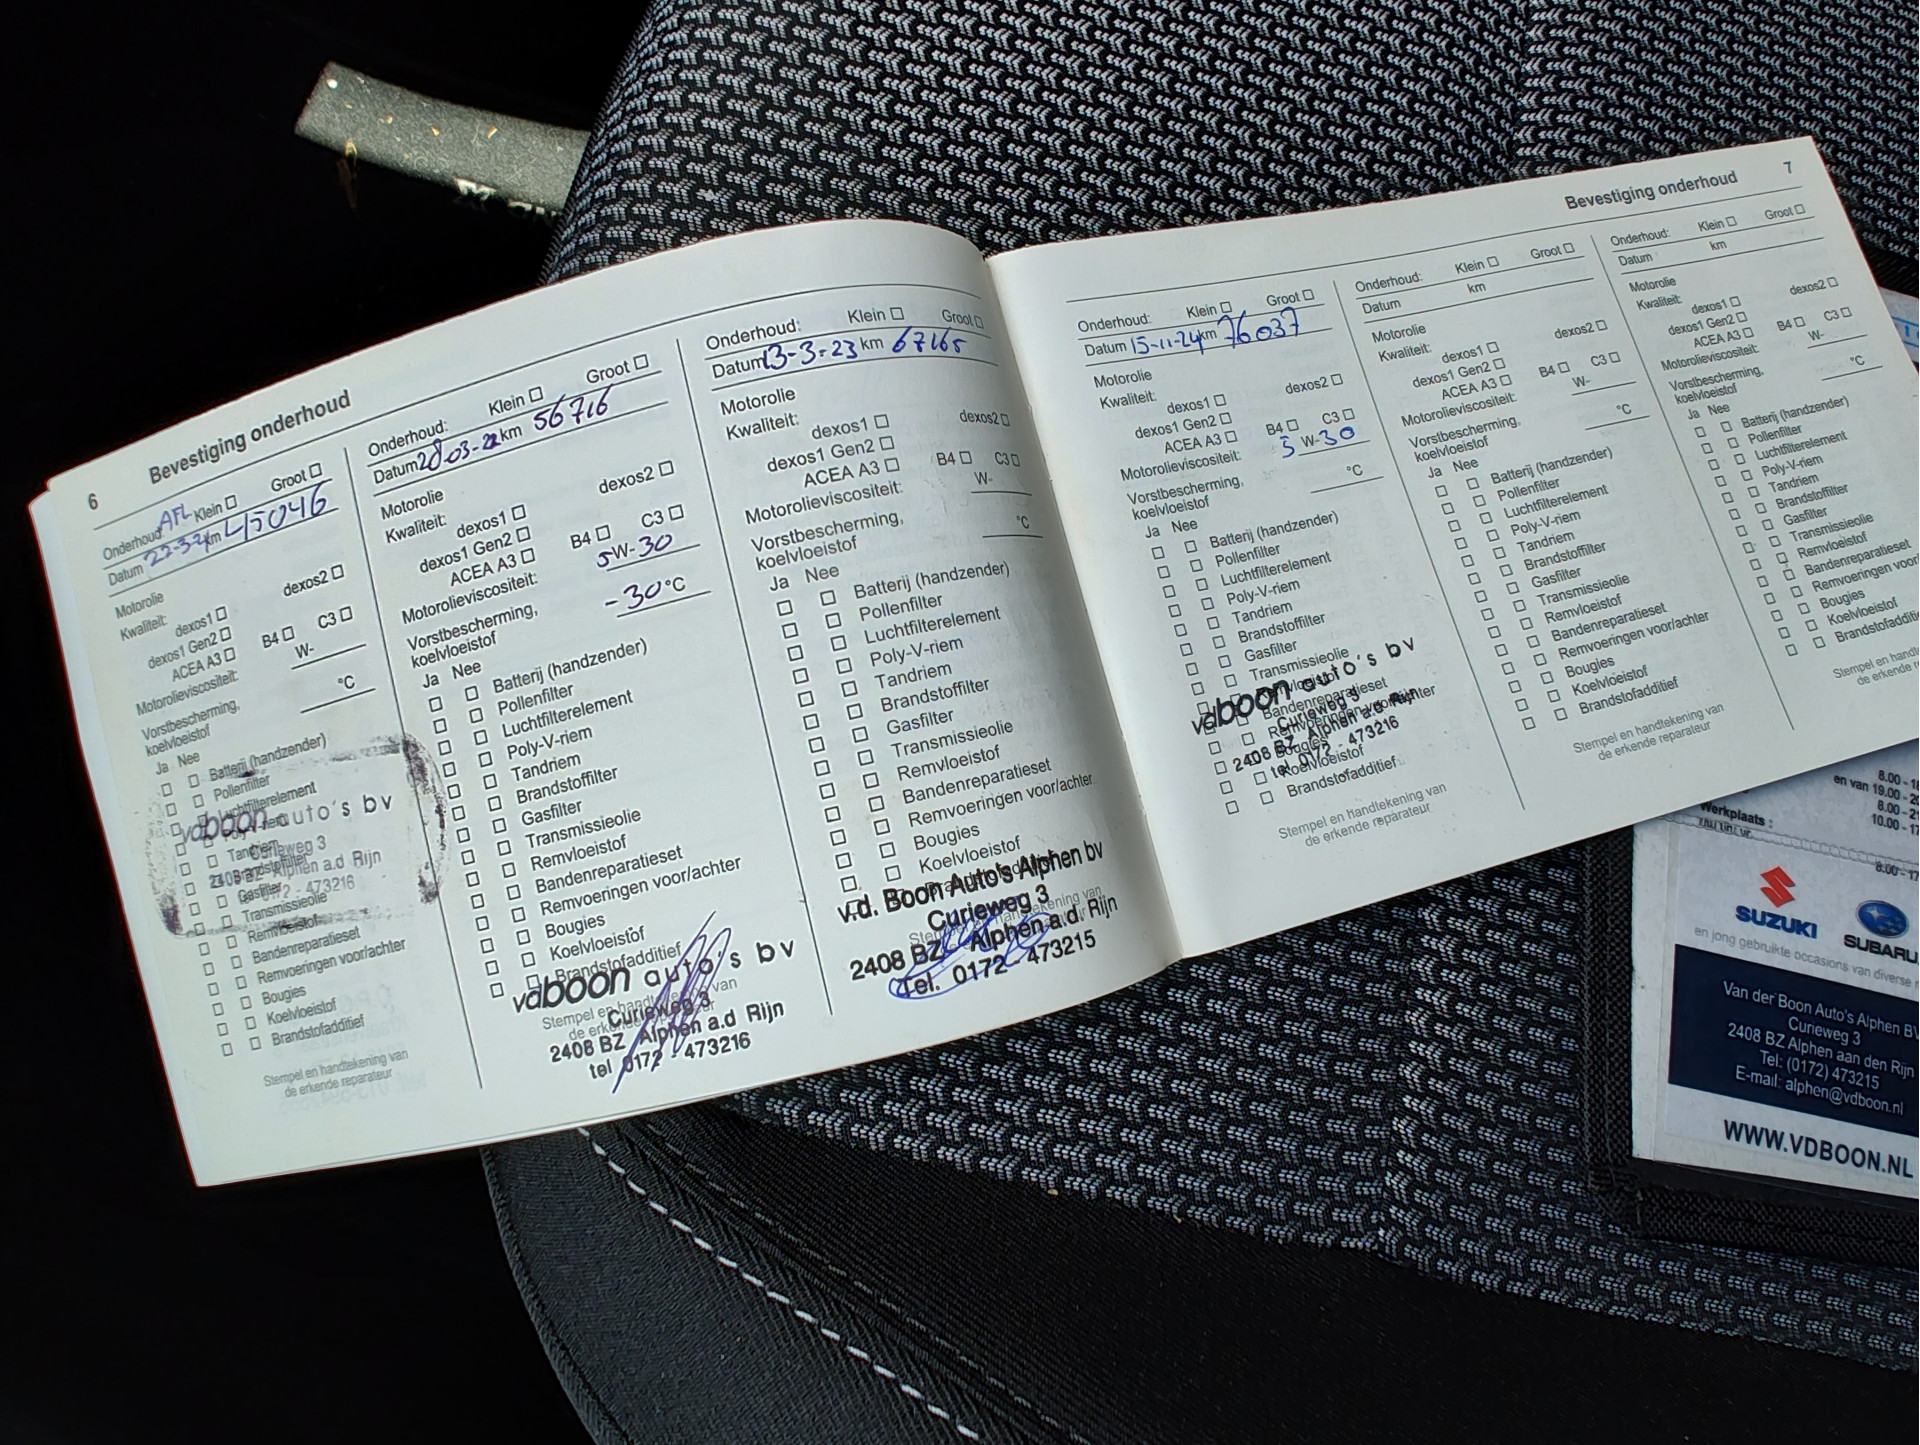 6 Bevestiging onderhoud
Onderhoud: AFL Klein Groot
Datum km 45046
Motorolie
Kwaliteit: dexos1 dexos2
dexos1 Gen2
ACEA A3 B4 C3
Motorolieviscositeit: W-
Vorstbescherming,
koelvloeistof °C
Ja Nee
Batterij (handzender)
Pollenfilter
Luchtfilterelement
Poly-V-riem
Tandriem
Brandstoffilter
Gasfilter
Transmissieolie
Remvloeistof
Bandenreparatieset
Remvoeringen voor/achter
Bougies
Koelvloeistof
Brandstofadditief
vdboon auto's bv
Curieweg 3
2408 BZ Alphen a.d Rijn
0172 - 473216
Stempel en handtekening van
de erkende reparateur
Onderhoud: Klein Groot
Datum 28 03-22 km 56716
Motorolie
Kwaliteit: dexos1 dexos2
dexos1 Gen2
ACEA A3 B4 C3
Motorolieviscositeit: 5W-30
Vorstbescherming,
koelvloeistof -30°C
Ja Nee
Batterij (handzender)
Pollenfilter
Luchtfilterelement
Poly-V-riem
Tandriem
Brandstoffilter
Gasfilter
Transmissieolie
Remvloeistof
Bandenreparatieset
Remvoeringen voor/achter
Bougies
Koelvloeistof
Brandstofadditief
Stempel en handtekening van
de erkende reparateur
vdboon auto's bv
Curieweg 3
2408 BZ Alphen a.d Rijn
tel 0172 - 473216
Onderhoud: Klein Groot
Datum 13-3-23 km 67165
Motorolie
Kwaliteit: dexos1 dexos2
dexos1 Gen2
ACEA A3 B4 C3
Motorolieviscositeit: W-
Vorstbescherming,
koelvloeistof °C
Ja Nee
Batterij (handzender)
Pollenfilter
Luchtfilterelement
Poly-V-riem
Tandriem
Brandstoffilter
Gasfilter
Transmissieolie
Remvloeistof
Bandenreparatieset
Remvoeringen voor/achter
Bougies
Koelvloeistof
v.d. Boon Auto's Alphen bv
Curieweg 3
2408 BZ Alphen a.d. Rijn
Tel. 0172 - 473215
Bevestiging onderhoud 7
Onderhoud: Klein Groot
Datum 15-11-24 km 76037
Motorolie
Kwaliteit: dexos1 dexos2
dexos1 Gen2
ACEA A3 B4 C3
Motorolieviscositeit: 5 W-30
Vorstbescherming,
koelvloeistof °C
Ja Nee
Batterij (handzender)
Pollenfilter
Luchtfilterelement
Poly-V-riem
Tandriem
Brandstoffilter
Gasfilter
Transmissieolie
Remvloeistof
Bandenreparatieset
Remvoeringen voor/achter
Bougies
Koelvloeistof
Brandstofadditief
vdboon auto's bv
Curieweg 3
2408 BZ Alphen a.d Rijn
tel 0172 - 473216
Stempel en handtekening van
de erkende reparateur
Onderhoud: Klein Groot
Datum km
Motorolie
Kwaliteit: dexos1 dexos2
dexos1 Gen2
ACEA A3 B4 C3
Motorolieviscositeit: W-
Vorstbescherming,
koelvloeistof °C
Ja Nee
Batterij (handzender)
Pollenfilter
Luchtfilterelement
Poly-V-riem
Tandriem
Brandstoffilter
Gasfilter
Transmissieolie
Remvloeistof
Bandenreparatieset
Remvoeringen voor/achter
Bougies
Koelvloeistof
Brandstofadditief
Stempel en handtekening van
de erkende reparateur
Onderhoud: Klein Groot
Datum km
Motorolie
Kwaliteit: dexos1 dexos2
dexos1 Gen2
ACEA A3 B4 C3
Motorolieviscositeit: W-
Vorstbescherming,
koelvloeistof °C
Ja Nee
Batterij (handzender)
Pollenfilter
Luchtfilterelement
Poly-V-riem
Tandriem
Brandstoffilter
Gasfilter
Transmissieolie
Remvloeistof
Bandenreparatieset
Remvoeringen voor
Bougies
Koelvloeistof
Brandstofadditie
Stempel en
de erk
8.00 -
en van 19.00 -
8.00 -
Werkplaats : 10.00 - 17
8.00 - 17
SUZUKI SUBARU
en jong gebruikte occasions van diverse
Van der Boon Auto's Alphen BV
Curieweg 3
2408 BZ Alphen aan den Rijn
Tel: (0172) 473215
E-mail: alphen@vdboon.nl
WWW.VDBOON.NL